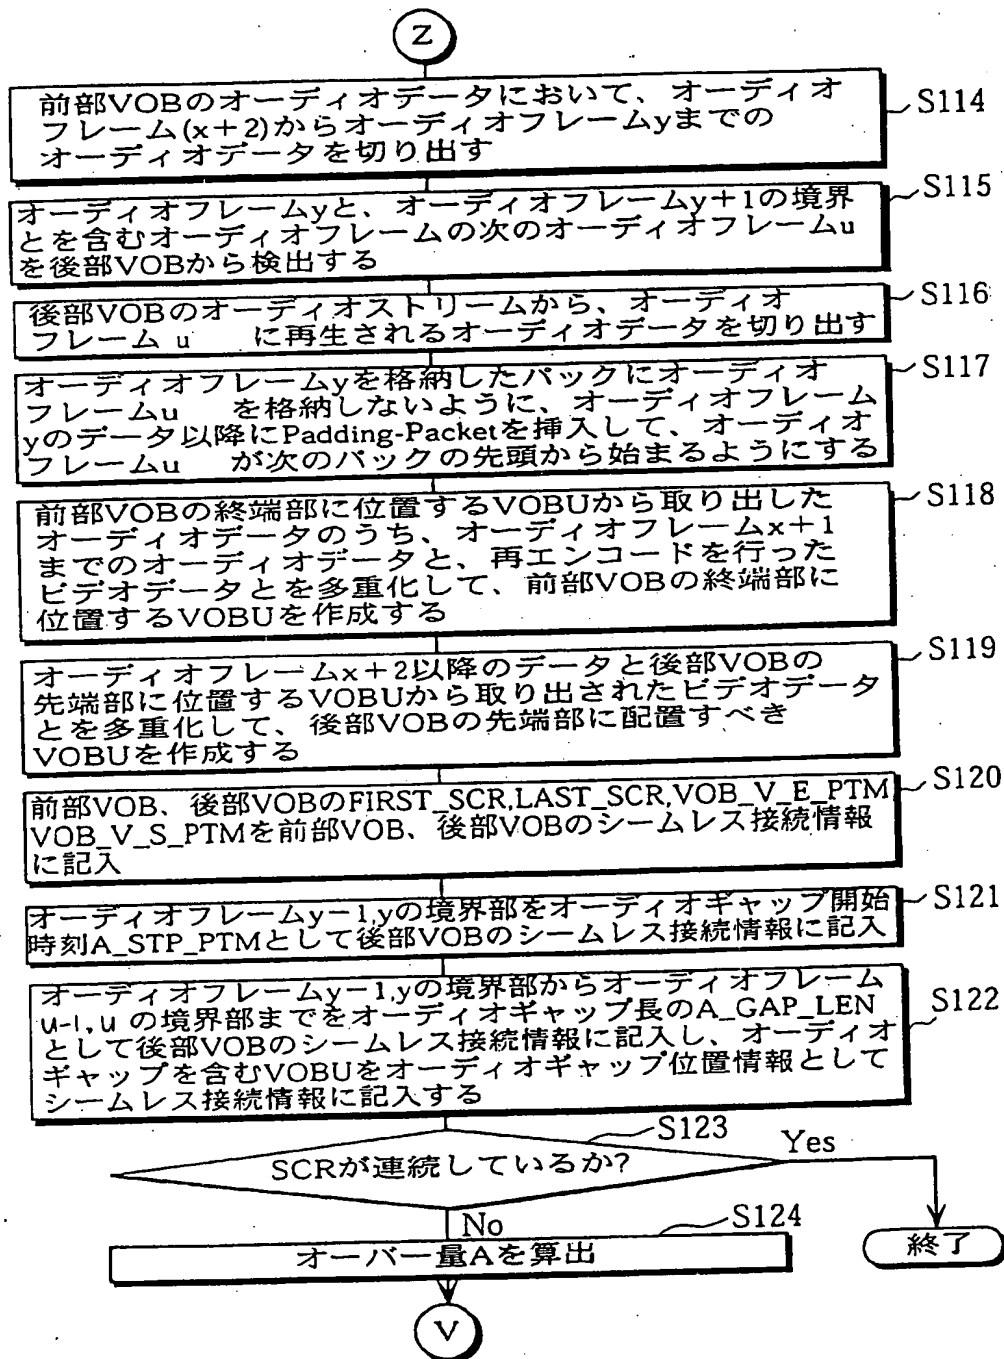 Z
前部VOBのオーディオデータにおいて、オーディオ
フレーム(x+2)からオーディオフレームyまでの
オーディオデータを切り出す
S114
オーディオフレームyと、オーディオフレームy+1の境界
とを含むオーディオフレームの次のオーディオフレームu
を後部VOBから検出する
S115
後部VOBのオーディオストリームから、オーディオ
フレーム u に再生されるオーディオデータを切り出す
S116
オーディオフレームyを格納したパックにオーディオ
フレームu を格納しないように、オーディオフレーム
yのデータ以降にPadding-Packetを挿入して、オーディオ
フレームu が次のパックの先頭から始まるようにする
S117
前部VOBの終端部に位置するVOBUから取り出した
オーディオデータのうち、オーディオフレームx+1
までのオーディオデータと、再エンコードを行った
ビデオデータとを多重化して、前部VOBの終端部に
位置するVOBUを作成する
S118
オーディオフレームx+2以降のデータと後部VOBの
先端部に位置するVOBUから取り出されたビデオデータ
とを多重化して、後部VOBの先端部に配置すべき
VOBUを作成する
S119
前部VOB、後部VOBのFIRST_SCR,LAST_SCR,VOB_V_E_PTM
VOB_V_S_PTMを前部VOB、後部VOBのシームレス接続情報
に記入
S120
オーディオフレームy-1,yの境界部をオーディオギャップ開始
時刻A_STP_PTMとして後部VOBのシームレス接続情報に記入
S121
オーディオフレームy-1,yの境界部からオーディオフレーム
u-1,u の境界部までをオーディオギャップ長のA_GAP_LEN
として後部VOBのシームレス接続情報に記入し、オーディオ
ギャップを含むVOBUをオーディオギャップ位置情報として
シームレス接続情報に記入する
S122
SCRが連続しているか?
S123
Yes
終了
No
オーバー量Aを算出
S124
V